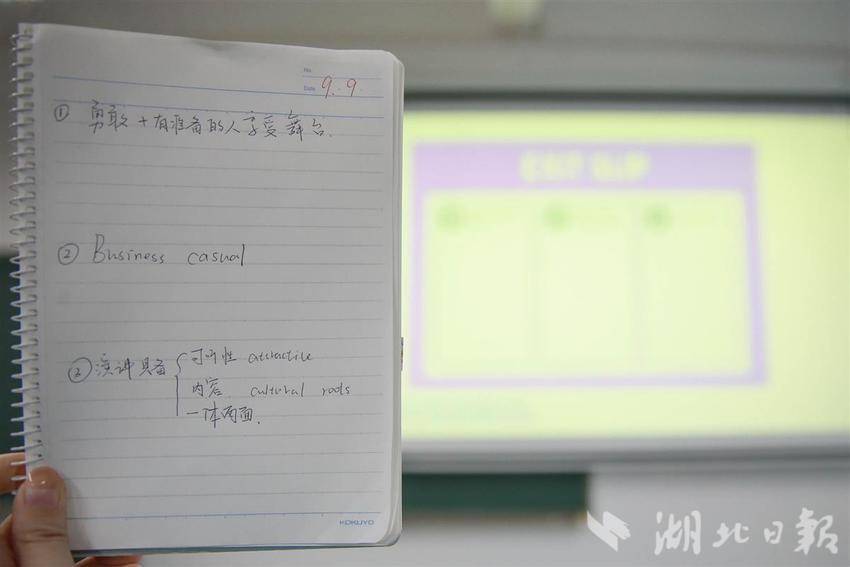 No.
Date 9.9.
① 勇敢+有准备的人享受舞台.
② Business casual
③ 演讲具备
可听性 attractive
内容 cultural roots
一体两面.
KOKUYO
湖北日報